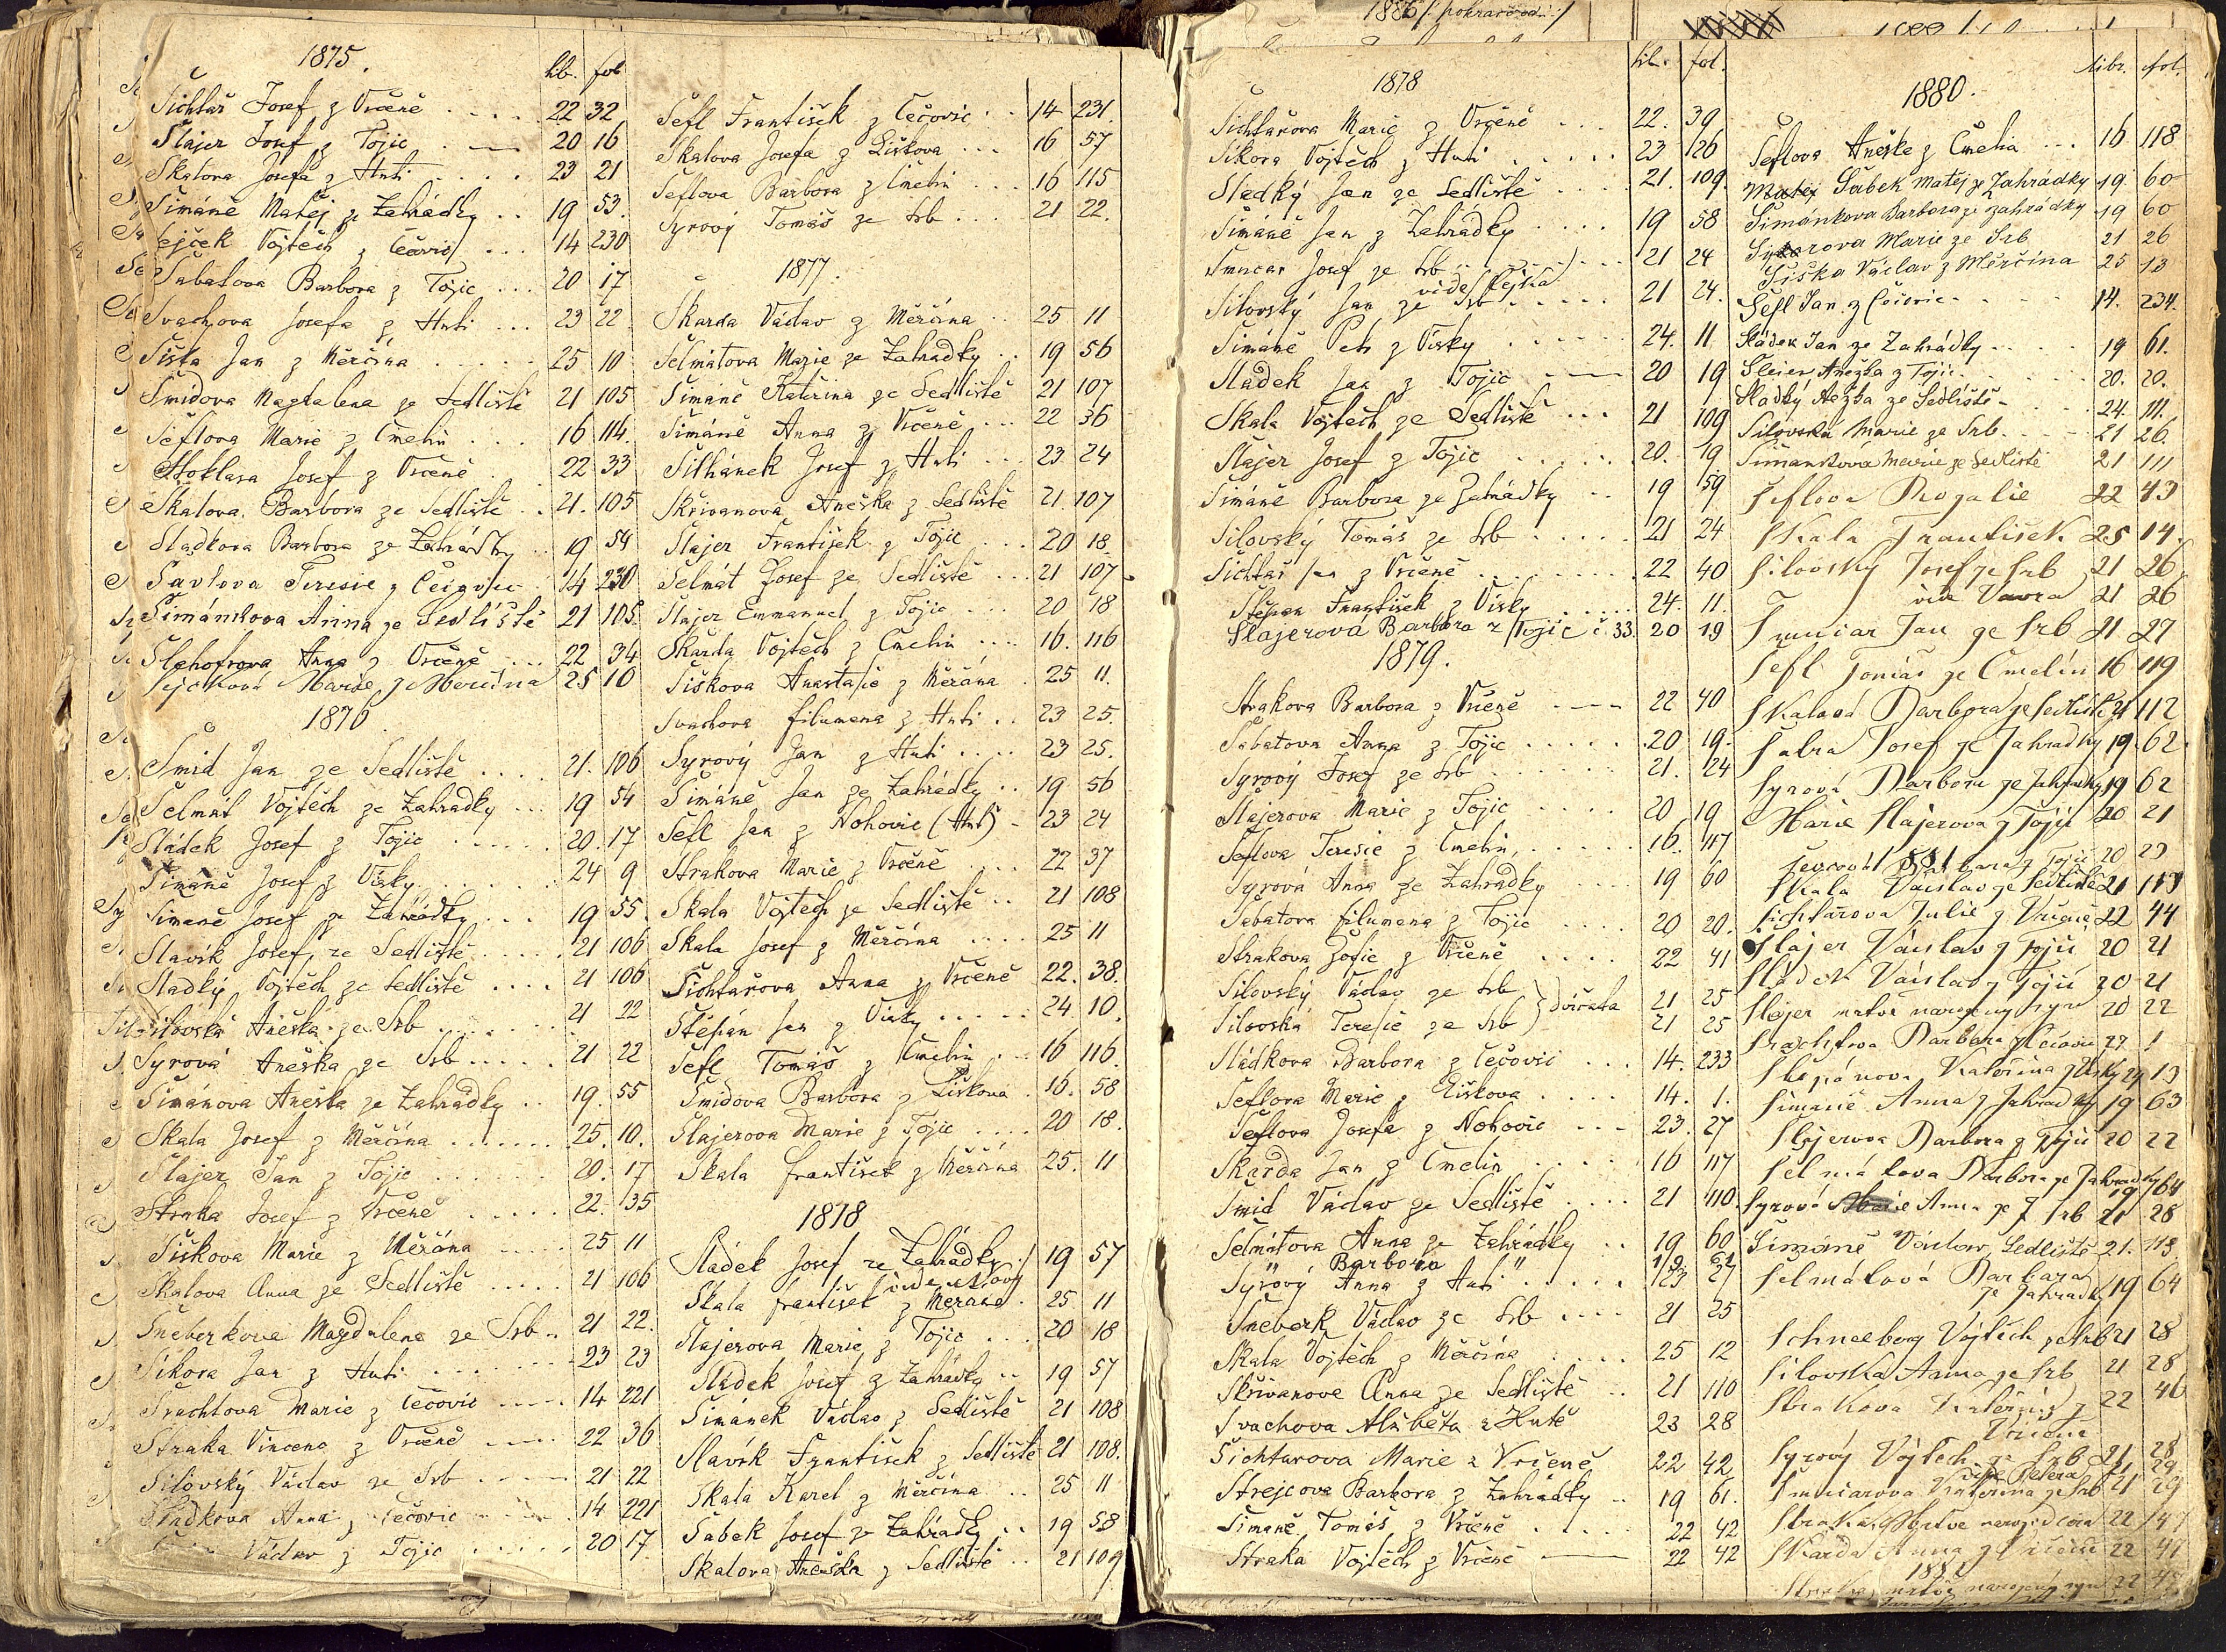 1875.
lib. fol
Šichtař Josef z Vrčeně 22 32
Šlajer Josef z Tojic 20 16
Skalova Josefa z Huti 23 21
Šimáně Matěj ze Zahrádky 19 53.
Šejček Vojtěch z Čečovic 14 230
Sabatova Barbora z Tojic 20 17
Svachova Josefa z Huti 23 22
Šiška Jan z Měrčína 25 10
Šmidova Magdalena ze Sedliště 21 105
Šeflova Marie z Čmelín 16 114.
Stoklasa Josef z Vrčeně 22 33
Skalova Barbora ze Sedliště 21. 105
Sladkova Barbora ze Zahrádky 19 54
Šavlova Teresie z Čečovic 14 230
Šimánkova Anna ze Sedliště 21 105.
Šlehofrova Anna z Vrčeně 22 34
Šejčková Marie z Merčína 25 10
1876.
Šmid Jan ze Sedliště 21. 106
Šelmát Vojtěch ze Zahradky 19 54
Sládek Josef z Tojic 20. 17
Šimáně Josef z Vísky 24 9
Šimaně Josef ze Zahrádky 19 55.
Slavík Josef ze Sedliště 21 106
Sladký Vojtěch ze Sedliště 21 106
Silovská Aněška ze Srb 21 22
Syrová Aneška ze Srb 21 22
Šimánova Aněška ze Zahrádky 19. 55
Skala Josef z Měrčína 25. 10.
Šlajer Jan z Tojic 20. 17
Straka Josef z Vrčeně 22. 35
Šiškova Marie z Měrčína 25 11
Skalova Anna ze Sedliště 21 106
Šneberkova Magdalena ze Srb 21 22.
Sikora Jan z Huti 23 23
Šrachtova Marie z Čečovic 14 221
Straka Vincenc z Vrčeně 22 36
Silovský Václav ze Srb 21 22
Sladkova Anna z Čečovic 14 221
Václav z Tojic 20 17
Šefl František z Čečovic 14 231.
Skalova Josefa z Liškova 16 57
Šeflova Barbora z Čmelín 16 115
Syrový Tomáš ze Srb 21 22.
1877.
Skarda Václav z Měrčína 25 11
Šelmátova Marie ze Zahrádky 19 56
Šimáně Kateřina ze Sedliště 21 107
Šimáně Anna z Vrčeně 22 36
Šilhánek Josef z Huti 23 24
Skřivanova Aneška z Sedliště 21. 107
Šlajer František z Tojic 20 18.
Šelmát Josef ze Sedliště 21 107
Šlajer Emmanuel z Tojic 20 18
Škarda Vojtěch z Čmelin 16. 116
Šiškova Anastasie z Měrčína 25 11.
Svachova filumena z Huti 23 25.
Syrový Jan z Huti 23 25.
Šimáně Jan ze Zahrádky 19 56
Šefl Jan z Nohovic (Huť) 23 24
Strakova Marie z Vrčeně 22 37
Skala Vojtěch ze Sedliště 21 108
Skala Josef z Měrčína 25 11
Šichtařova Anna z Vrčeně 22. 38.
Štěpán Jan z Vísky 24 10.
Šefl Tomáš z Čmelin 16 116
Šmidova Barbora z Liškova 16. 58
Šlajerova Marie z Tojic 20 18.
Skala františek z Měrčína 25. 11
1878
Sládek Josef ze Zahrádky 19 57
Skala františek z Merčína 25 11
Šlajerova Marie z Tojic 20 18
Sládek Josef z Zahrádky 19 57
Šimánek Václav z Sedliště 21 108
Slavík František z Sedliště 21 108.
Skala Karel z Měrčína 25 11
Šabek Josef ze Zahrádky 19 58
Skalova Aneška z Sedliště 21 109
1878
lib. fol.
Šichtařova Marie z Vrčeně 22. 39
Sikora Vojtěch z Huti 23 26
Sladký Jan ze Sedliště 21. 109.
Šimáně Jan z Zahrádky 19 58
Šmucar Josef ze Srb 21 24
vide Šejna
Silovský Jan ze Srb 21 24.
Šimáně Petr z Vísky 24. 11.
Sladek Jan z Tojic 20 19
Skala Vojtěch ze Sedliště 21 109
Šlajer Josef z Tojic 20. 19
Šimáně Barbora ze Zahrádky 19 59
Silovský Tomáš ze Srb 21 24
Šichtař Jan z Vrčeně 22 40
Štěpan František z Vísky 24. 11.
Šlajerová Barbora z Tojic č 33. 20 19
1879.
Strakova Barbora z Vrčeně 22 40
Sabatova Anna z Tojic 20 19.
Syrový Josef ze Srb 21. 24
Šlajerova Marie z Tojic 20 19
Šeflova Teresie z Čmelin 16. 117
Syrová Anna ze Zahrádky 19 60
Sabatova filumena z Tojic 20 20.
Strakova Žofie z Vrčeně 22 41
Silovský Václav ze Srb 21 25
Silovská Teresie ze Srb } dvojčata 21 25
Sládkova Barbora z Čečovic 14. 233
Šeflova Marie z Liškova 14. 1.
Šeflova Josefa z Nohovic 23. 27
Skarda Jan z Čmelin 16 117
Šmid Václav ze Sedliště 21 110.
Šelmátova Anna ze Zahrádky 19 60
" Barbora "
Syrový Anna z Huti 23 27
Šneberk Václav ze Srb 21 25
Skala Vojtěch z Měrčína 25 12
Skřivanova Anna ze Sedliště 21 110
Svachova Alžběta z Hutě 23 28
Šichtarova Marie z Vrčeně 22 42
Strejcova Barbora z Zahrádky 19 61.
Šimaně Tomáš z Vrčeně 22 42
Straka Vojtěch z Vrčeně 22 42
1880.
libr. fol.
Šeflova Aneške z Čmelína 16 118
Matěj Šabek Matěj ze Zahrádky 19. 60
Šimánkova Barbora ze zahrádky 19 60
Marie ze Srb 21 26
Šiška Václav z Měrčína 25 13
Šefl Jan z Čečovic 14. 234.
Sládek Jan ze Zahrádky 19 61.
Šleier Anežka z Tojic 20. 20.
Sladký ze Sedliště 24. 111.
Silovská Marie ze Srb 21 26.
Šimankova Marie ze Sedliště 21 111
Šeflova Rozalie 22 43
Skala František 25 14.
Silovský Josef ze Srb 21 26
vide Vavra 21 26
Šmucar Jan ze Srb 21 27
Šefl Tomáš ze Čmelín 16 119
Skalová Barbora ze Sedliště 21 112
Josef ze Zahradky 19. 62.
Syrová Barbora ze Zahradky 19 62
Marie Šlajerova z Tojic 20 21
1881
Skala Václav ze Sedliště 21 113
Šichtářova Julie z Vrčeně 22 44
Šlajer Václav z Tojic 20 21
Sládek Václav z Tojic 20 21
Šlajer mrtvě narozený syn 20 22
Šrachtova Barbara z Čečovic 27 1
Štepánova Kateřina z Vísky 24 13
Šimaně Anna z Zahradky 19 63
Šlajerova Barbora z Tojic 20 22
Šelmátova Barbora ze Zahradky 19 64
Syrová Anna ze Srb 21 28
Šimáně Václav Sedliště 21. 113.
Šelmátová Barbara
ze Zahradk 19 64
Schneeberg Vojtěch ze Srb 21 28
Silovská Anna ze Srb 21 28
Strakova Kateřina z 22 46
Vrčena
Syrový Vojtěch ze Srb 21 28
21 29
Šmucarova Kateřina ze Srb 21 29
Straka Mrtvě naroz. dcera 22 47
Skarda Anna z Vrčeně 22 47
188
Straka mrtvě narozený syn 22